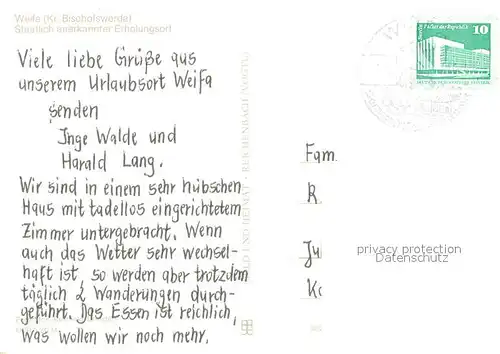 Weifa (Kr. Bischofswerda)
Staatlich anerkannter Erholungsort
10
Viele liebe Grüße aus
unserem Urlaubsort Weifa
senden
Inge Walde und
Harald Lang.
Wir sind in einem sehr hübschen
Haus mit tadellos eingerichtetem
Zimmer untergebracht. Wenn
auch das Wetter sehr wechsel-
haft ist, so werden aber trotzdem
täglich 2 Wanderungen durch-
geführt. Das Essen ist reichlich,
was wollen wir noch mehr.
BILD UND HEIMAT REICHENBACH
Fam.
R
Ju
Ko
privacy protection
Datenschutz